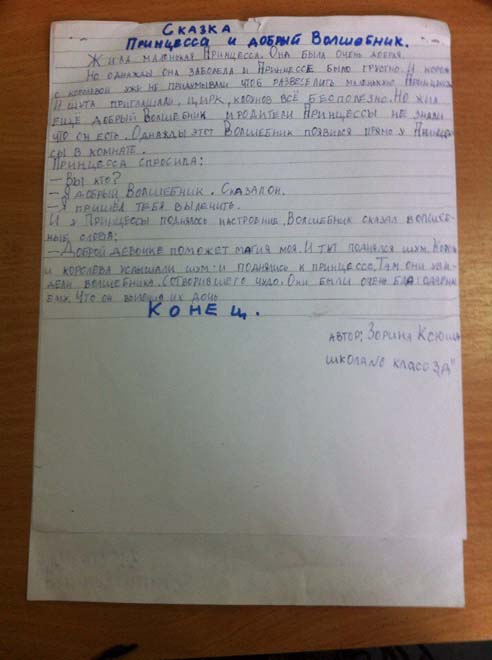 Сказка
Принцесса и добрый Волшебник.
Жила маленькая Принцесса. Она была очень добрая.
Но однажды она заболела и Принцессе было грустно. И король
с королевой уже не придумывали чтоб развеселить маленькую Принцессу
И шута приглашали, цирк, клоунов всё бесполезно. Но жил
ещё добрый Волшебник и родители Принцессы не знали
что он есть. Однажды этот Волшебник появился прямо у Принцес-
сы в комнате.
Принцесса спросила:
– Вы кто?
– Я добрый Волшебник. Сказал он.
– Я пришёл тебя вылечить.
И у Принцессы поднялось настроение. Волшебник сказал волшеб-
ные слова:
– Доброй девочке поможет магия моя. И тут поднялся шум. Король
и королева услышали шум и поднялись к принцессе. Там они уви-
дели волшебника. Сотворившего чудо. Они были очень благодарны
ему. Что он их дочь
Конец.
Автор: Зорина Ксюша
школа № класс 3 "Д"